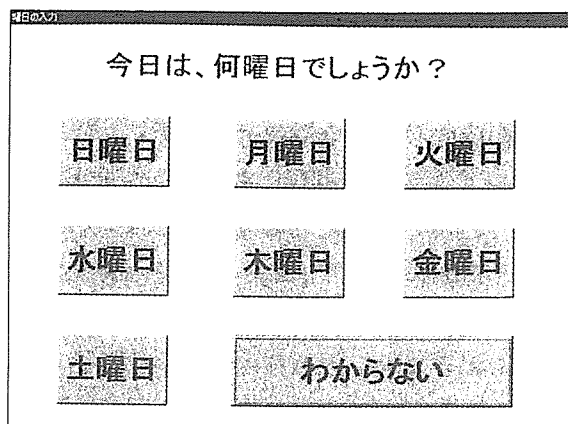 曜日の入力
今日は、何曜日でしょうか？
日曜日 月曜日 火曜日
水曜日 木曜日 金曜日
土曜日 わからない